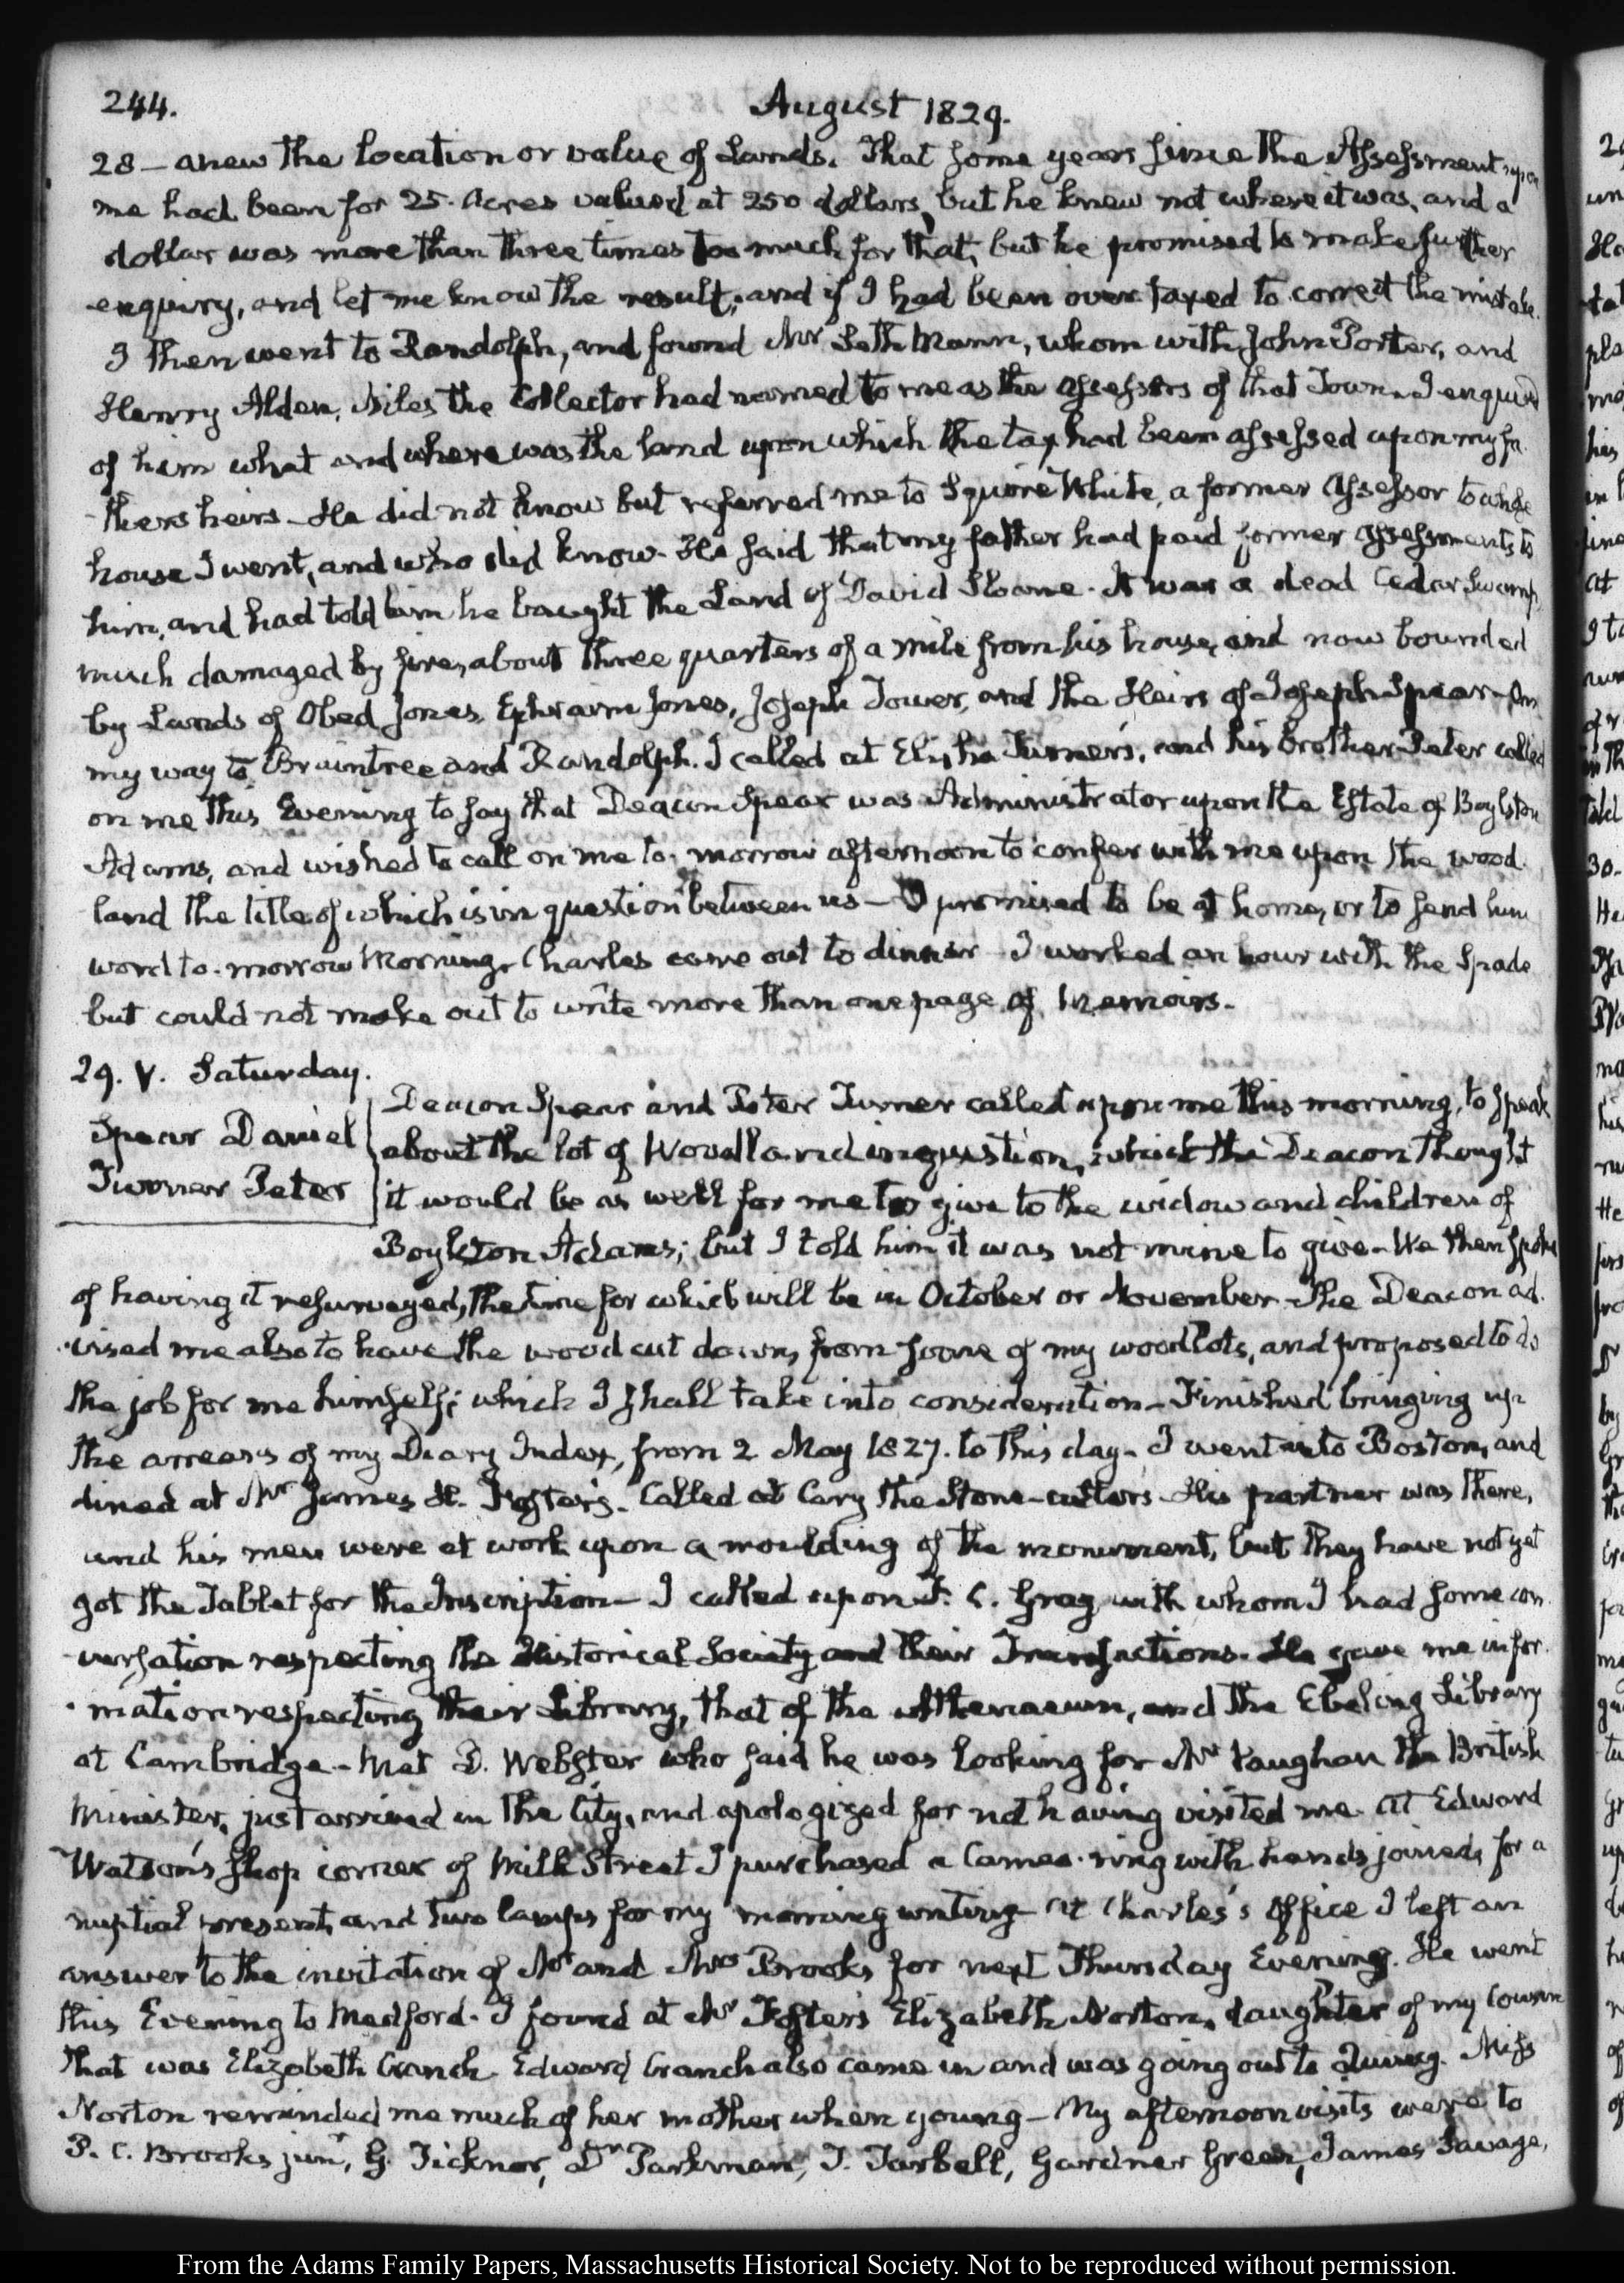 244.
August 1829.
28 — anew the location or value of Lands. That some years since the Assessment upon
me had been for 25. Acres valued at 250 dollars, but he knew not where it was, and a
dollar was more than three times too much for that, but he promised to make further
enquiry, and let me know the result, and if I had been over taxed to correct the mistake.
I then went to Randolph, and found Mr Seth Mann, whom with John Porter, and
Henry Alden, Niles the Collector had named to me as the Assessors of that Town. I enquired
of him what and where was the land upon which the tax had been assessed upon my fa-
thers heirs — He did not know but referred me to Squire White, a former Assessor to whose
house I went, and who did know. He said that my father had paid former Assessments to
him, and had told him he bought the Land of David Sloane. It was a dead Cedar Swamp,
much damaged by fire, about three quarters of a mile from his house, and now bounded
by Lands of Obed Jones, Ephraim Jones, Joseph Tower, and the Heirs of Joseph Spear — On
my way to Braintree and Randolph. I called at Elisha Turner's, and his brother Peter called
on me this Evening to say that Deacon Spear was Administrator upon the Estate of Boylston
Adams, and wished to call on me to-morrow afternoon to confer with me upon the wood
land the title of which is in question between us — I promised to be at home, or to send him
word to-morrow Morning. Charles came out to dinner — I worked an hour with the Spade
but could not make out to write more than one page of Memoirs.
29. V. Saturday.
Spear Daniel
Turner Peter
Deacon Spear and Peter Turner called upon me this morning, to speak
about the lot of Woodland in question, which the Deacon thought
it would be as well for me to give to the widow and children of
Boylston Adams; but I told him it was not mine to give — We then spoke
of having it resurveyed, the time for which will be in October or November — The Deacon ad-
vised me also to have the wood cut down, from some of my woodlots, and proposed to do
the job for me himself; which I shall take into consideration — Finished bringing up
the arrears of my Diary Index, from 2 May 1827. to this day — I went into Boston, and
dined at Mr James H. Foster's. Called at Cary the Stone-cutters — His partner was there,
and his men were at work upon a moulding of the monument, but they have not yet
got the Tablet for the Inscription — I called upon F. C. Gray with whom I had some con-
versation respecting the Historical Society and their Transactions. He gave me infor-
mation respecting their Library, that of the Athenaeum, and the Ebeling Library
at Cambridge — Met D. Webster who said he was looking for Mr Vaughan the British
Minister, just arrived in the City, and apologized for not having visited me. At Edward
Watson's shop corner of Milk Street I purchased a Cameo ring with hands joined, for a
nuptial present, and two lamps for my morning writing — At Charles's Office I left an
answer to the invitation of Mr and Mrs Brooks for next Thursday Evening. He went
this Evening to Medford. I found at Mr Foster's Elizabeth Norton, daughter of my Cousin
that was Elizabeth Cranch. Edward Cranch also came in and was going out to Quincy. Miss
Norton reminded me much of her mother when young — My afternoon visits were to
P. C. Brooks junr, G. Ticknor, Dr Parkman, T. Tarbell, Gardner Green, James Savage,
From the Adams Family Papers, Massachusetts Historical Society. Not to be reproduced without permission.